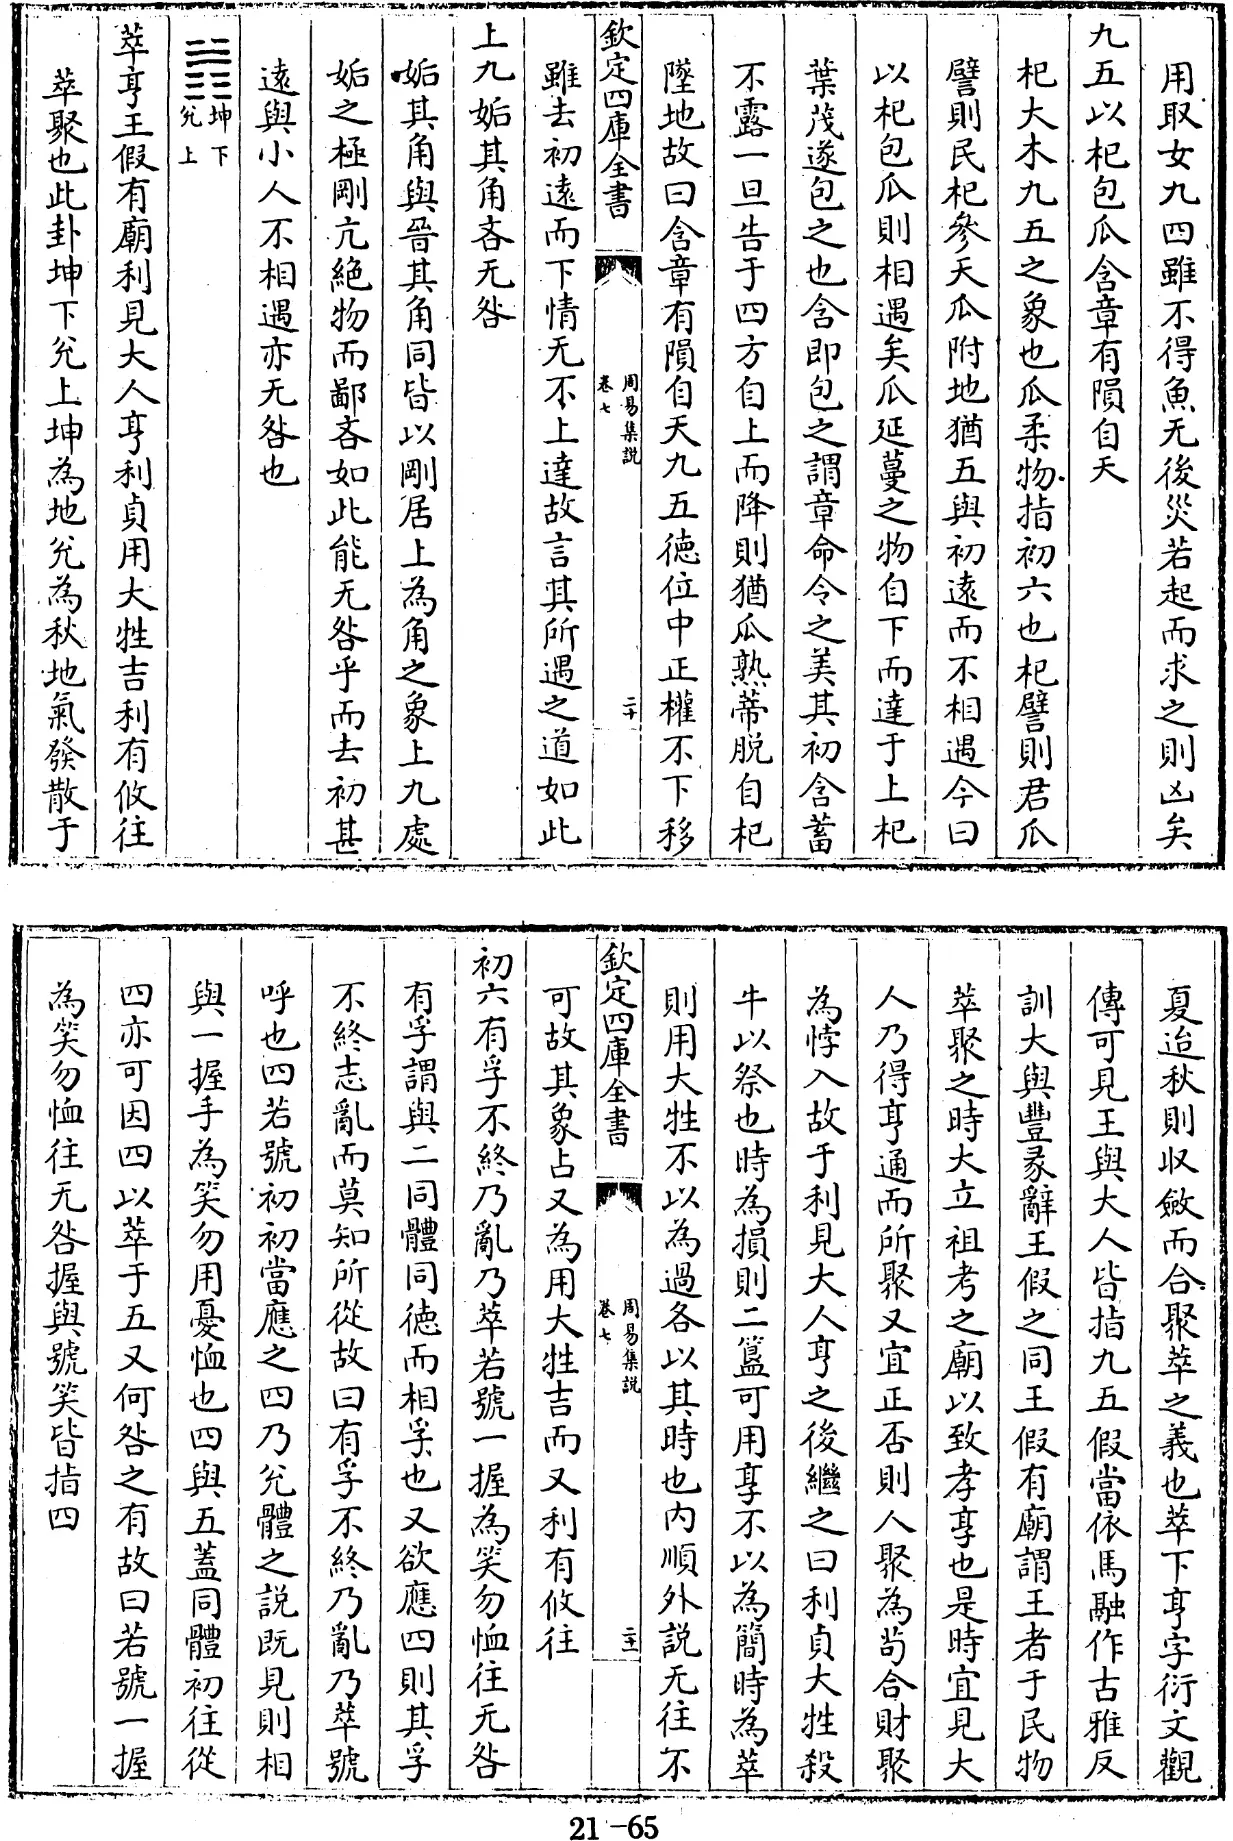 用取女九四雖不得魚无後災若起而求之則凶矣
九五以杞包瓜含章有隕自天
杞大木九五之象也瓜柔物指初六也杞譬則君瓜
譬則民杞參天瓜附地猶五與初遠而不相遇今曰
以杞包瓜則相遇矣瓜延蔓之物自下而達于上杞
葉茂遂包之也含即包之謂章命令之美其初含蓄
不露一旦告于四方自上而降則猶瓜熟蒂脱自杞
墜地故曰含章有隕自天九五徳位中正權不下移
欽定四庫全書
周易集説
卷七
二十
雖去初遠而下情无不上達故言其所遇之道如此
上九姤其角吝无咎
姤其角與晉其角同皆以剛居上為角之象上九處
姤之極剛亢絶物而鄙吝如此能无咎乎而去初甚
遠與小人不相遇亦无咎也
坤下
兊上
萃亨王假有廟利見大人亨利貞用大牲吉利有攸往
萃聚也此卦坤下兊上坤為地兊為秋地氣發散于
夏迨秋則收斂而合聚萃之義也萃下亨字衍文觀
傳可見王與大人皆指九五假當依馬融作古雅反
訓大與豐彖辭王假之同王假有廟謂王者于民物
萃聚之時大立祖考之廟以致孝享也是時宜見大
人乃得亨通而所聚又宜正否則人聚為茍合財聚
為悖入故于利見大人亨之後繼之曰利貞大牲殺
牛以祭也時為損則二簋可用享不以為簡時為萃
則用大牲不以為過各以其時也内順外説无往不
欽定四庫全書
周易集説
卷七
二十一
可故其象占又為用大牲吉而又利有攸往
初六有孚不終乃亂乃萃若號一握為笑勿恤往无咎
有孚謂與二同體同徳而相孚也又欲應四則其孚
不終志亂而莫知所從故曰有孚不終乃亂乃萃號
呼也四若號初初當應之四乃兊體之説既見則相
與一握手為笑勿用憂恤也四與五蓋同體初往從
四亦可因四以萃于五又何咎之有故曰若號一握
為笑勿恤往无咎握與號笑皆指四
21-65